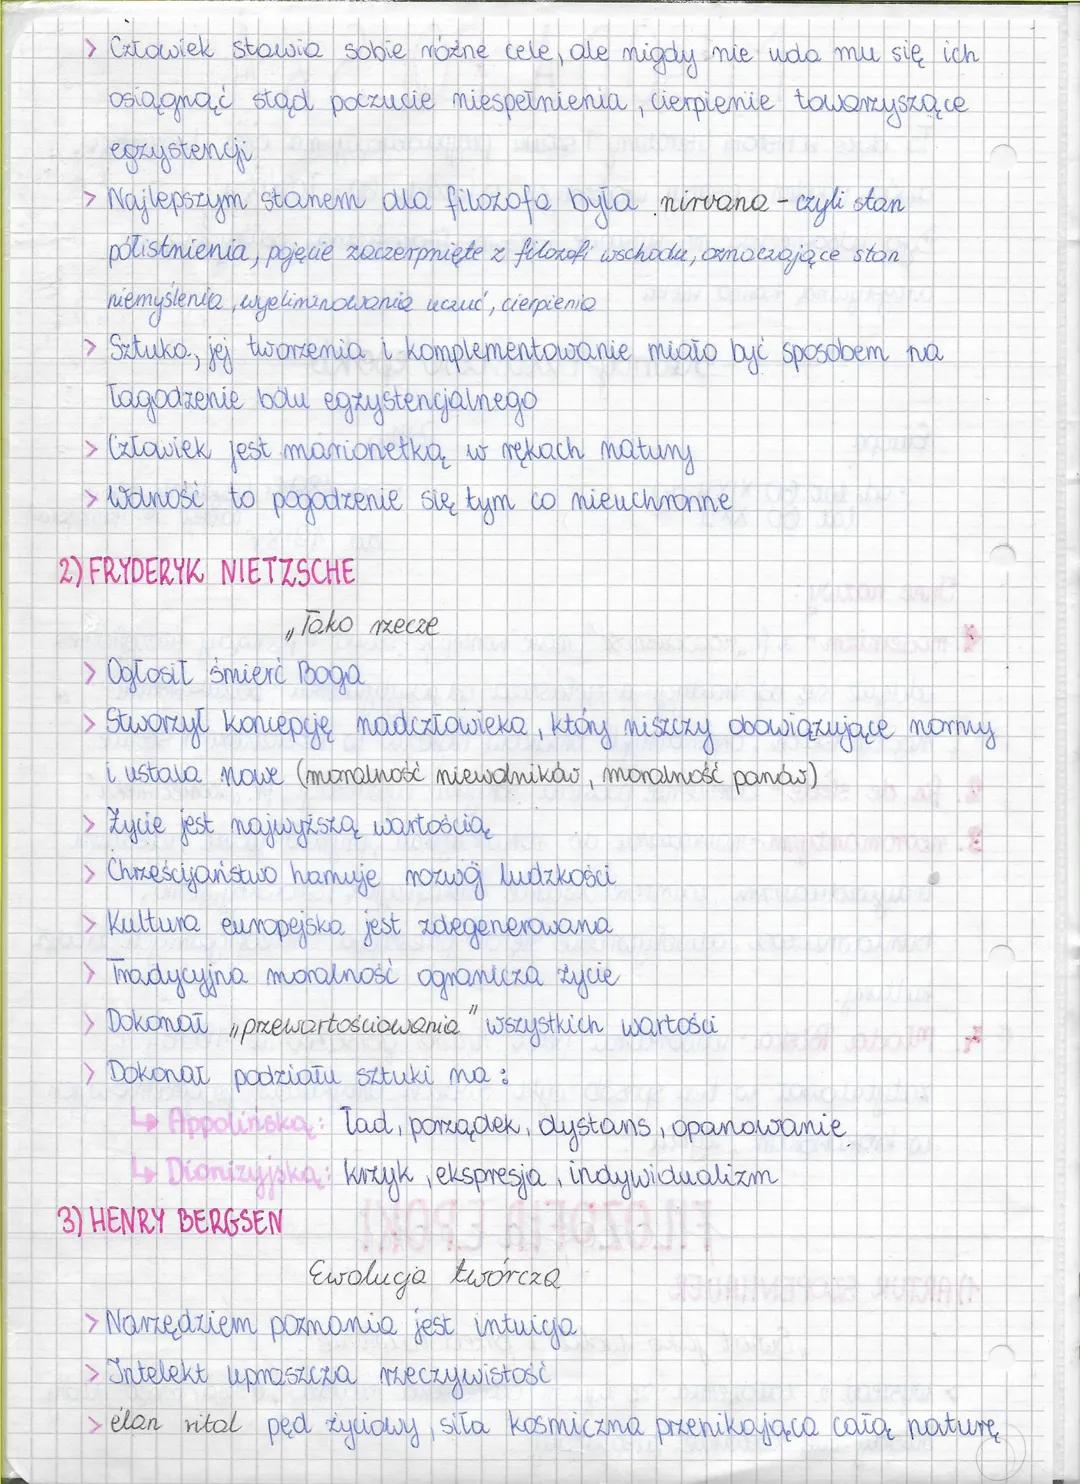 > Człowiek stawia sobie różne cele, ale nigdy nie uda mu się ich
osiągnąć stąd poczucie niespełnienia, cierpienie towarzyszące
egzystencji
> Najlepszym stanem dla filozofa była nirvana - czyli stan
półistnienia, pojęcie zaczerpnięte z filozofi wschodu, oznaczające stan
niemyślenia, wyeliminowania uczuć, cierpienia
> Sztuka, jej tworzenia i komplementowanie miało być sposobem na
łagodzenie bólu egzystencjalnego
> Człowiek jest marionetką w rękach natury
> Wolność to pogodzenie się tym co nieuchronne
2) FRYDERYK NIETZSCHE
„Tako rzecze
> Ogłosił śmierć Boga
> Stworzył koncepcję nadczłowieka, który niszczy obowiązujące normy
i ustala nowe (moralność niewolników, moralność panów)
> Życie jest najwyższą wartością
> Chrześcijaństwo hamuje rozwój ludzkości
> Kultura europejska jest zdegenerowana
> Tradycyjna moralność ogranicza życie
> Dokonał „przewartościowania" wszystkich wartości
> Dokonał podziału sztuki na:
↳ Appolińską: ład, porządek, dystans, opanowanie
↳ Dionizyjską: krzyk, ekspresja, indywidualizm
3) HENRY BERGSEN
Ewolucja twórcza
> Narzędziem poznania jest intuicja
> Intelekt upraszcza rzeczywistość
> élan vital pęd życiowy, siła kosmiczna przenikająca całą naturę